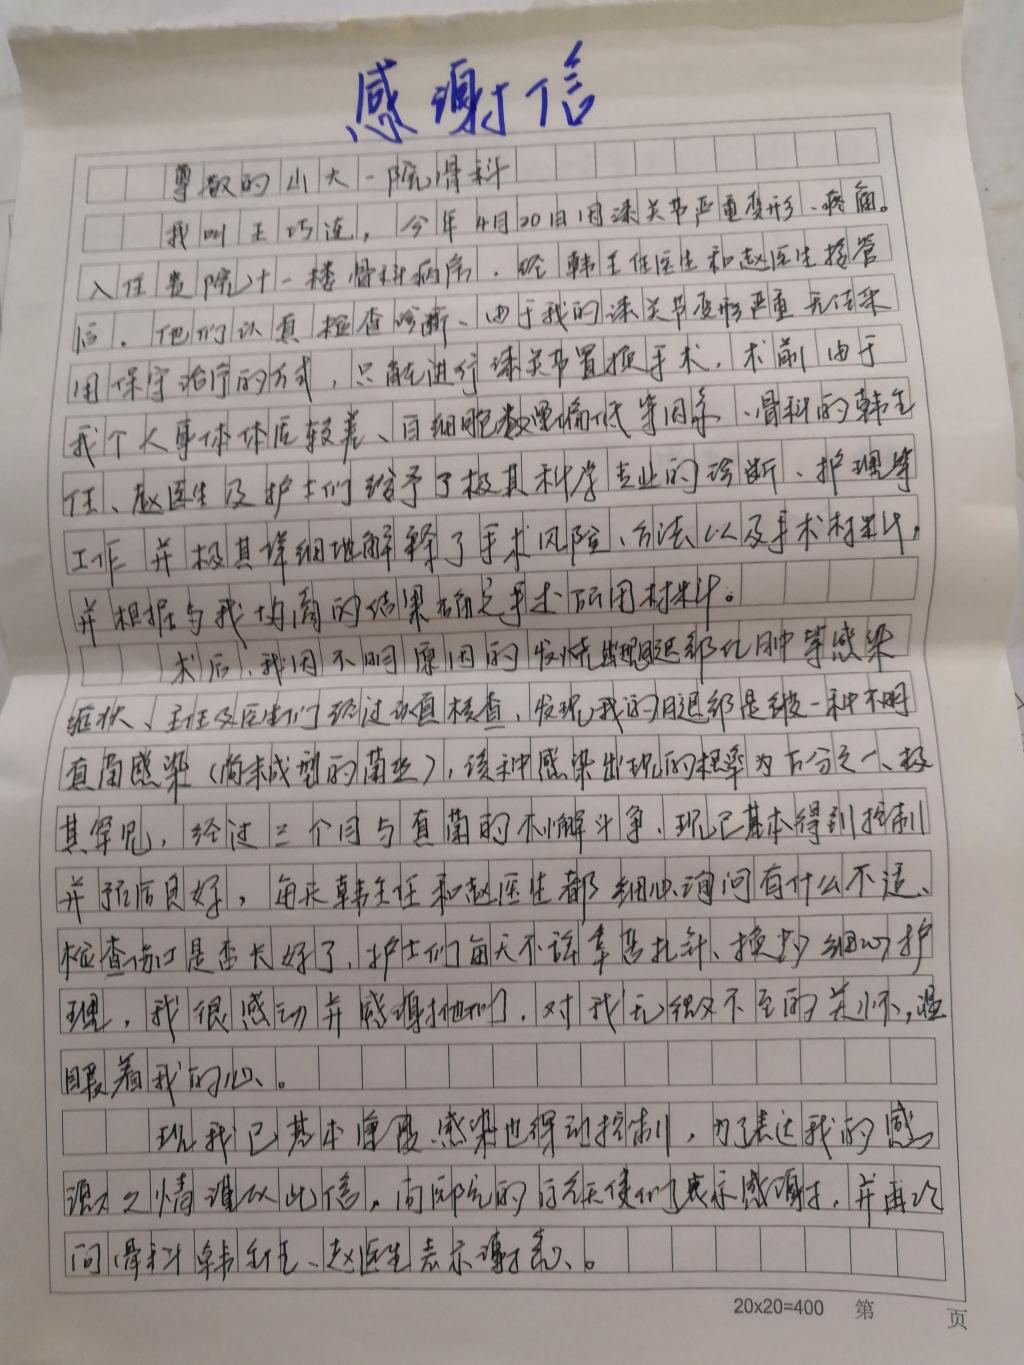 感谢信
尊敬的山大一院骨科
我叫王巧连，今年4月20日因漆关节严重变形、疼痛。
入住贵院十一楼骨科病房．经韩主任医生和赵医生接管
后．他们认真检查诊断、由于我的漆关节变形严重无法采
用保守治疗的方式，只能进行漆关节置换手术．术前由于
我个人身体体质较差、白细胞数量偏低等因素、骨科的韩主
任、赵医生及护士们给予了极其科学专业的诊断、护理等
工作并极其详细地解释了手术风险、方法以及手术材料，
并根据与我协商的结果确定手术所用材料。
术后、我因不明原因的发烧出现腿部红肿等感染
症状、主任及医生们经过认真核查、发现我的腿部是被一种不明
真菌感染（尚未成型的菌丝），该种感染出现的概率为百分之一、极
其罕见，经过三个月与真菌的不懈斗争、现已基本得到控制
并预后良好，每天韩主任和赵医生都细心询问有什么不适、
检查伤口是否长好了、护士们每天不辞辛苦扎针、换药细心护
理，我很感动并感谢他们，对我无微不至的关怀，温
暖着我的心、。
现我已基本康复感染也得到控制，为了表达我的感
谢之情谨以此信，向医院的白衣天使们表示感谢，并再次
向骨科韩主任、赵医生表示谢意、。
20x20=400 第 页